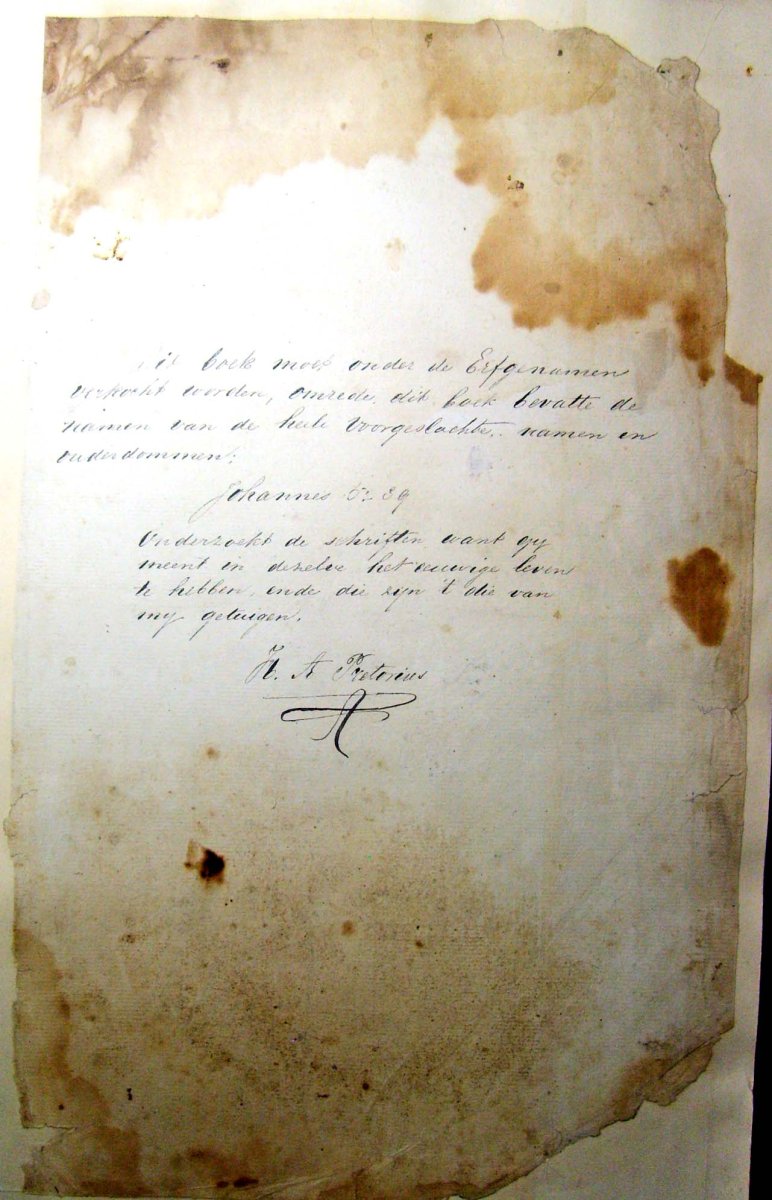 Dit boek moet onder de Erfgenamen
verkocht worden, omrede, dit boek bevatte de
namen van de hele Voorgeslachte, namen en
ouderdommen;
Johannes 5: 39
Onderzoekt de schriften want gy
meent in dezelve het eeuwige leven
te hebben, ende die zijn 't die van
my getuigen.
H. A Pretorius